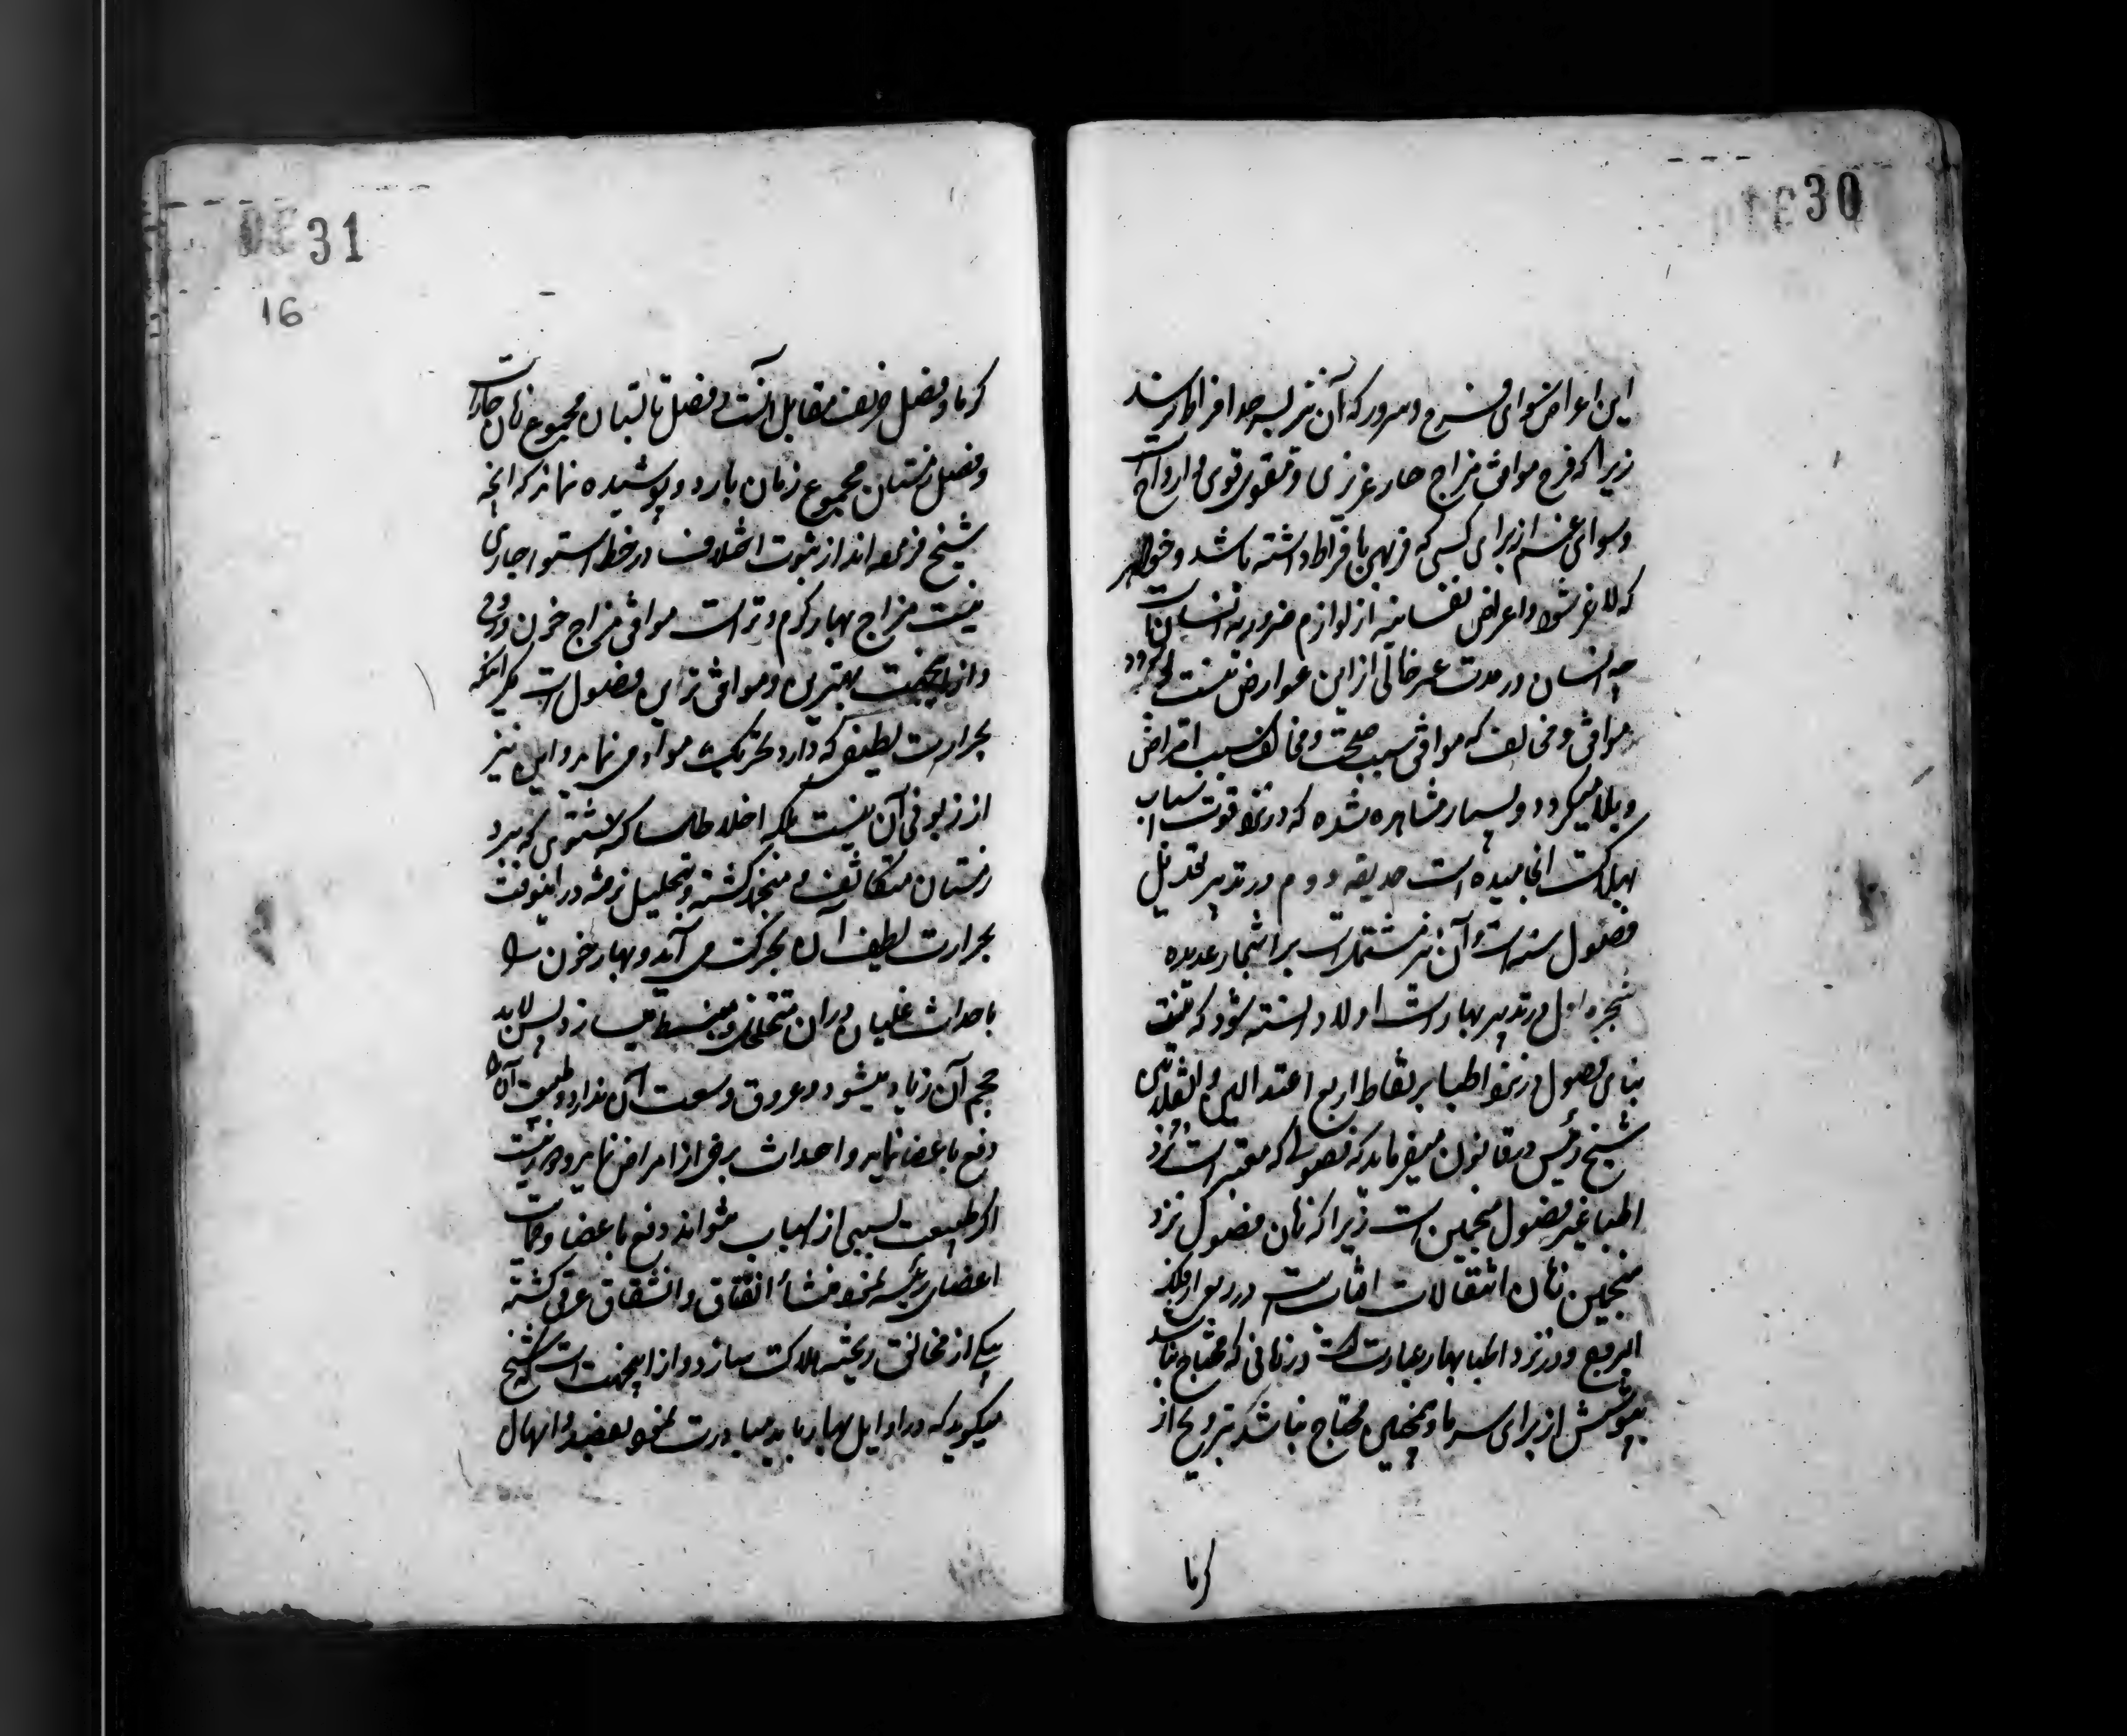 30
این اعراض سوای فرح و سرور که آن نیز بسر حد افراط رسد
زیرا که فرح موافق مزاج حار غریزی و مقوی قوی و ارواح است
و سوای غم از برای کسی که فربهی بافراط داشته باشد و خواهد
که لاغر شود و اعراض نفسانیه از لوازم ضروریه انسان است
چه انسان در مدت عمر خالی از این عوارض نیست
موافق و مخالف که موافق سبب صحت و مخالف سبب امراض
و بلا میگردد و بسیار مشاهده شده که در نزد قوت اسباب
بهلاکت انجامیده است حدیقه دوم در تدبیر تعدیل
فصول سنه است و آن نیز مشتمل است بر اشجار عدیده
شجره اول در تدبیر بهار است اولا دانسته شود که
بنای فصول در نزد اطبا بر نقاط اربع اعتدالین و انقلابین
شیخ رئیس در قانون میفرماید که فصولی که معتبر است نزد
اطبا غیر فصول منجمین است زیرا که زمان فصول نزد
منجمین زمان انتقالات افتابست در ربع از فلک
البروج و در نزد اطبا بهار عبارت است در زمانی که محتاج نباشد
بپوشش از برای سرما و همچنین محتاج نباشد بترویح از
کرما
31
16
کرما و فصل خریف مقابل آنست و فصل تابستان مجموع زمان حار است
و فصل زمستان مجموع زمان بارد و پوشیده نماند که انچه
شیخ فرموده اند از ثبوت اختلاف در خط استوا جاری
نیست مزاج بهار کرم و تر است موافق مزاج خون و روح
و از اینجهت بهترین و موافق ترین فصول است مکر اینکه
بحرارت لطیفی که دارد تحریک مواد می نماید و این نیز
از زبونی آن نیست بلکه اخلاط ساکن شتوی که ببرد
زمستان متکاثف و منجمد کشته و بتحلیل نرفته در اینوقت
بحرارت لطیف آن بحرکت می آید و بهار خون را
باحداث غلیان در ان متخلخل و منبسط میسازد پس لابد
حجم آن زیاد میشود و عروق وسعت آن ندارد و طبیعت آن را
دفع باعضا نماید و احداث برخی از امراض نماید
اکر طبیعت بسببی از اسباب نتواند دفع باعضا و حمایت
اعضای رئیسه نمود منشأ انفتاق و انشقاق عرقی کشته
بیکی از مخانق ریخته هلاکت سازد و از اینجهت است که شیخ
میکوید که در اوایل بهار باید مبادرت نمود بفصد و اسهال